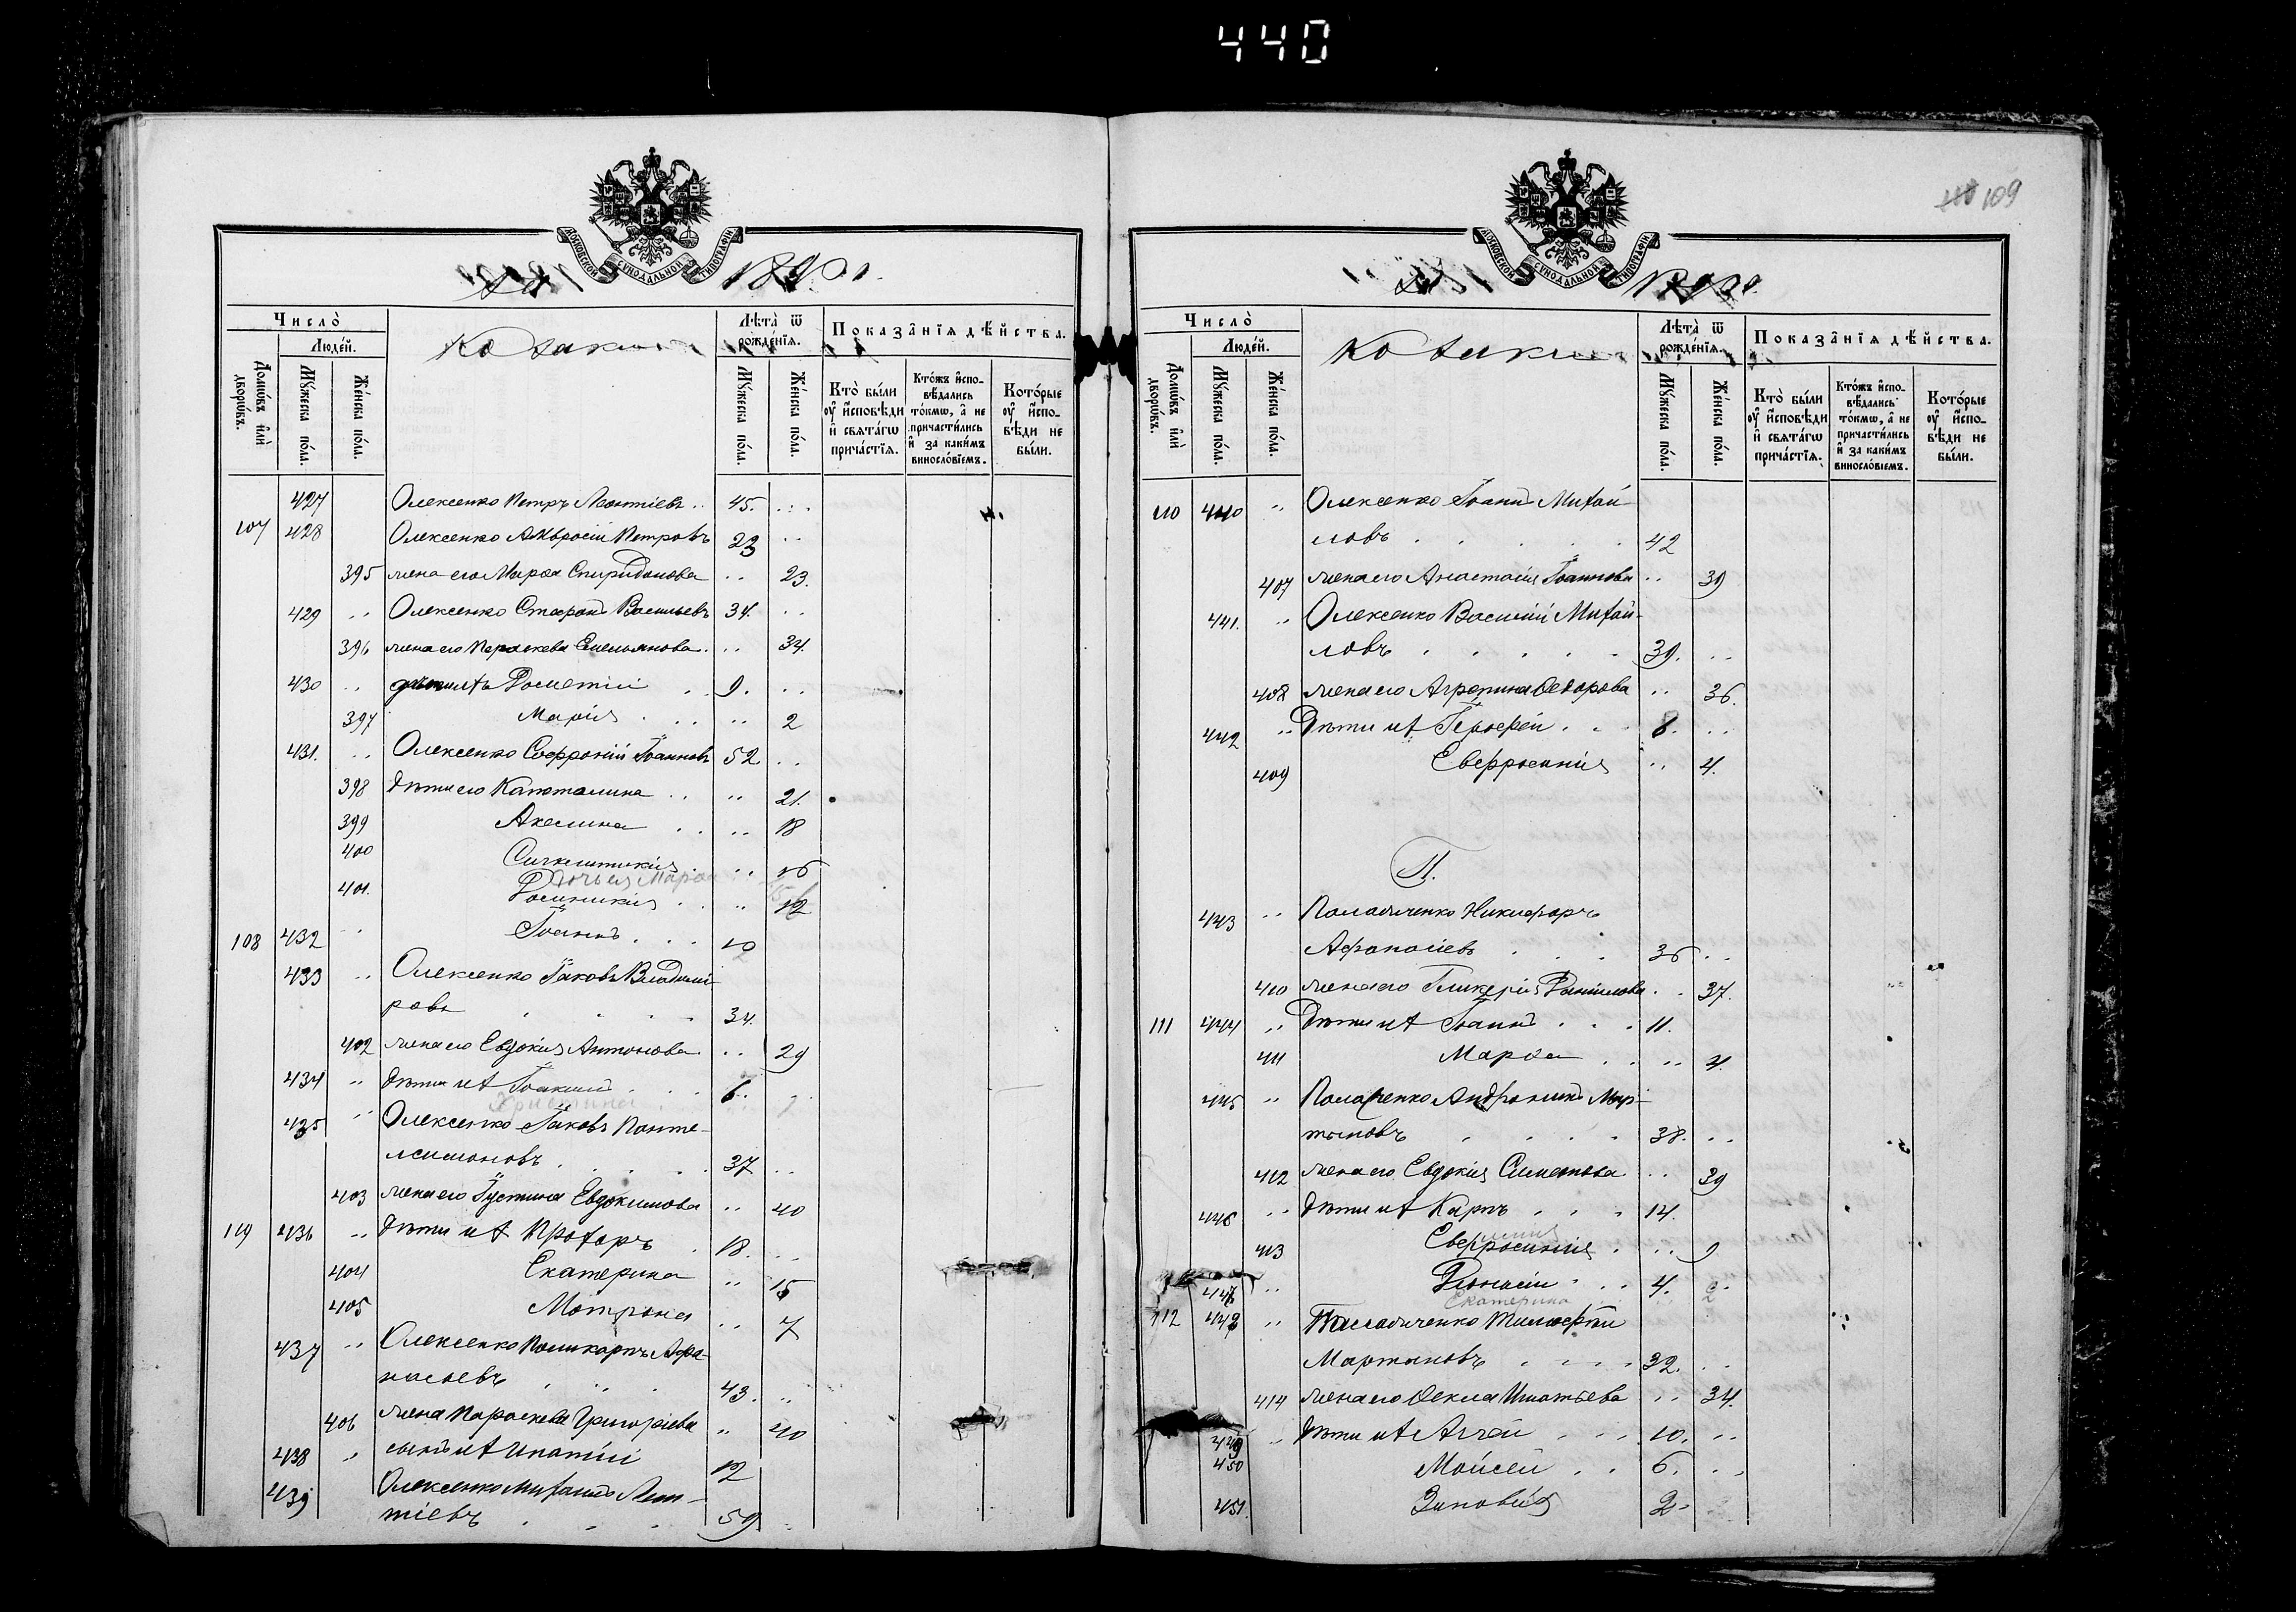 440
109
МОСКОВСКОЙ СѴНОДАЛЬНОЙ ТИПОГРАФІИ
Число̀
Людей.
Домѡвъ и҆лѝ дворѡвъ.
Мꙋжеска пола.
Женска пола.
Козаки
Лѣта̀ ѿ рожденїѧ.
Мꙋжеска пола.
Женска пола.
Показанїѧ дѣйства.
Кто̀ были ᲂу҆ и҆сповѣди и҆ свѧтагѡ причастїѧ.
Ктожъ и҆сповѣдались токмѡ, а҆ не причастились и҆ за какимъ винословїемъ.
Которые ᲂу҆ и҆сповѣди не были.
427 Олексенко Петръ Леонтіевъ 45.
107 428 Олексенко Амвросій Петровъ 23
395 жена его Марѳа Спиридонова 23.
429 Олексенко Стефанъ Васильевъ 34.
396 жена его Параскева Емельянова 34.
430 дѣти ихъ 9.
397 Марія 2
431. Олексенко Софроній Іоанновъ 52
398 дѣти его Капитолина 21.
399 Акелина 18
400 16
401. 12
108 432 Іоаннъ 10
433 Олексенко Іаковъ Владимі-
ровъ 34.
402 жена его Евдокія Антонова 29
434 дѣти ихъ Іоакимъ 6.
Христина
435 Олексенко Іаковъ Панте-
леимоновъ 37
403 жена его Іустина Евдокимова 40
119 436 дѣти ихъ Прохоръ 18.
404 Екатерина 15
405 Матрона 7
437 Олексенко Поликарпъ Афа-
насьевъ 43.
406 жена Параскева Григоріева 40
438 сынъ ихъ Ипатій 12
439 Олексенко Михаилъ Леон-
тіевъ 59
МОСКОВСКОЙ СѴНОДАЛЬНОЙ ТИПОГРАФІИ
Число̀
Людей.
Домѡвъ и҆лѝ дворѡвъ.
Мꙋжеска пола.
Женска пола.
Козаки
Лѣта̀ ѿ рожденїѧ.
Мꙋжеска пола.
Женска пола.
Показанїѧ дѣйства.
Кто̀ были ᲂу҆ и҆сповѣди и҆ свѧтагѡ причастїѧ.
Ктожъ и҆сповѣдались токмѡ, а҆ не причастились и҆ за какимъ винословїемъ.
Которые ᲂу҆ и҆сповѣди не были.
110 440 Олексенко Іоаннъ Михай-
ловъ 42
407 жена его Анастасія Іоаннова 39
441. Олексенко Василій Михай-
ловъ 39.
408 жена его Агрепина Ѳедорова 36.
442 Дѣти ихъ 8.
409 Евфросинія 4.
П.
443 Никифоръ
Афанасіевъ 36
410 жена его Гликерія Данилова 37.
111 444 Дѣти ихъ Іоаннъ 11.
411 Марѳа 4.
445 Андроникъ Мар-
тыновъ 38.
412 жена его Евдокія Симеонова 39
446 дѣти ихъ Карпъ 14.
413 Евфросинія 9
447 Діонисій 4.
Екатерина 2
112 448 Тимофей
Мартыновъ 32.
414 жена его Ѳекла Игнатьева 34.
449 Дѣти ихъ Аггей 10.
450 Моисей 6.
451. Зиновій 2